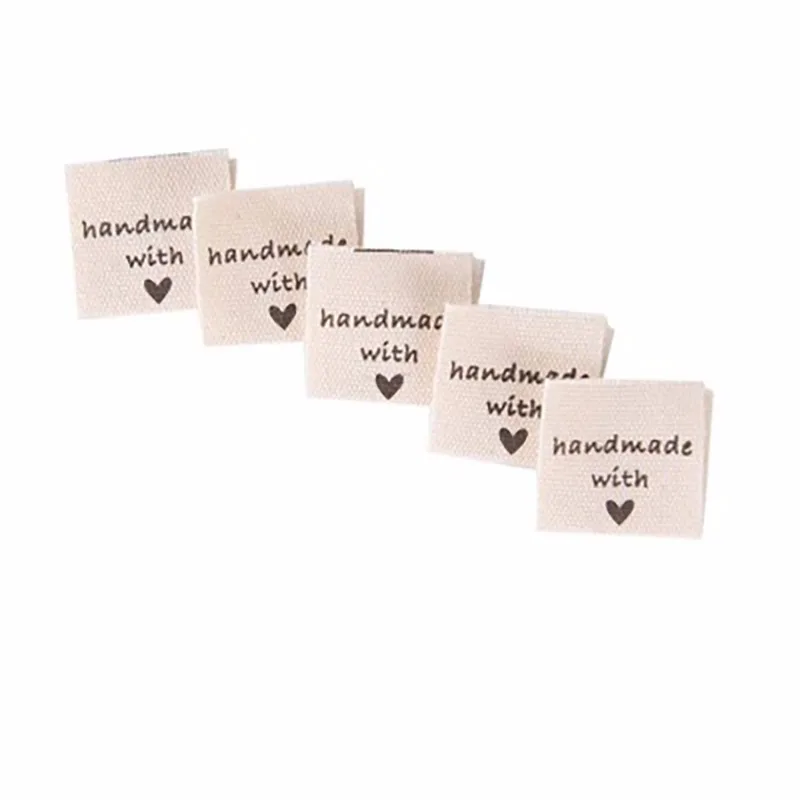 handma
with
handmade
with
handmad
with
handmade
with
handmade
with